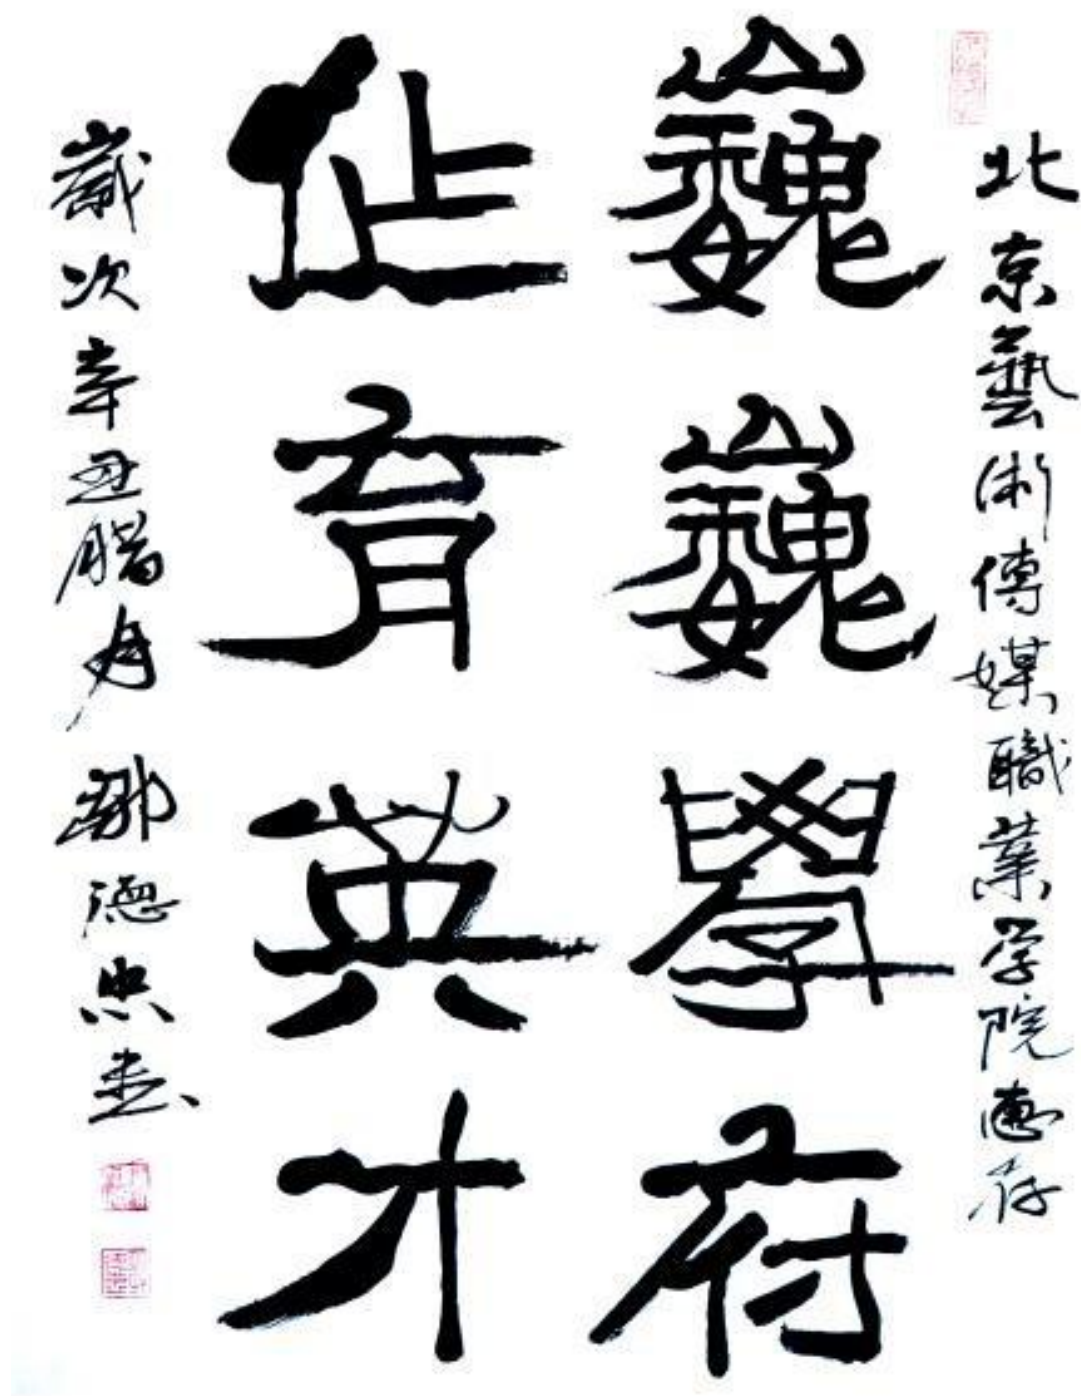 北京藝術傳媒職業学院惠存
巍巍學府
作育英才
歲次辛丑腊月鄒德忠書